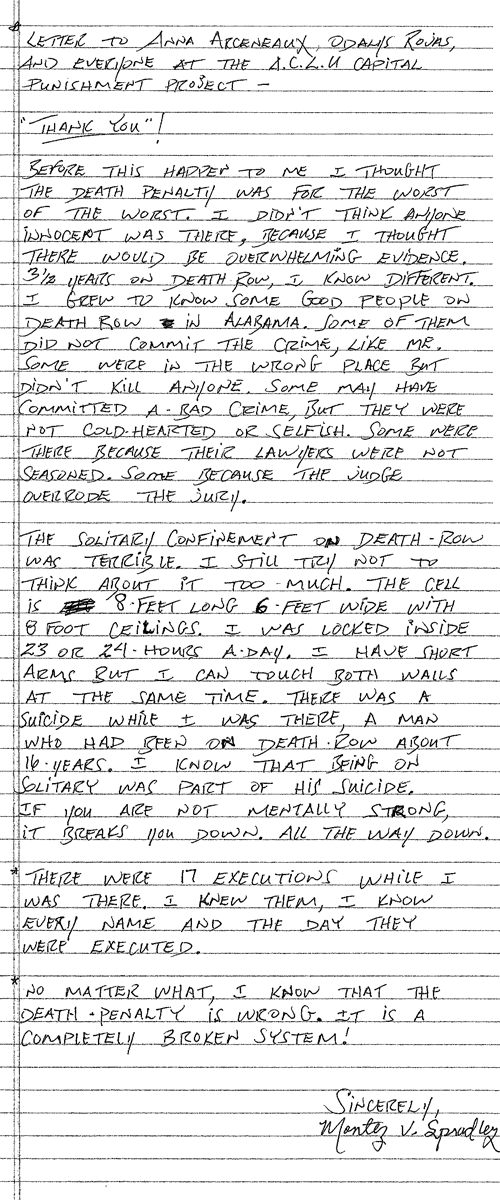 * LETTER TO ANNA ARCENEAUX, ODALYS ROJAS,
AND EVERYONE AT THE A.C.L.U CAPITAL
PUNISHMENT PROJECT -
"THANK YOU"!
BEFORE THIS HAPPEN TO ME I THOUGHT
THE DEATH PENALTY WAS FOR THE WORST
OF THE WORST. I DIDN'T THINK ANYONE
INNOCENT WAS THERE, BECAUSE I THOUGHT
THERE WOULD BE OVERWHELMING EVIDENCE.
3½ YEARS ON DEATH ROW, I KNOW DIFFERENT.
I GREW TO KNOW SOME GOOD PEOPLE ON
DEATH ROW IN ALABAMA. SOME OF THEM
DID NOT COMMIT THE CRIME, LIKE ME.
SOME WERE IN THE WRONG PLACE BUT
DIDN'T KILL ANYONE. SOME MAY HAVE
COMMITTED A-BAD CRIME, BUT THEY WERE
NOT COLD-HEARTED OR SELFISH. SOME WERE
THERE BECAUSE THEIR LAWYERS WERE NOT
SEASONED. SOME BECAUSE THE JUDGE
OVERRODE THE JURY.
THE SOLITARY CONFINEMENT ON DEATH-ROW
WAS TERRIBLE. I STILL TRY NOT TO
THINK ABOUT IT TOO-MUCH. THE CELL
IS 8-FEET LONG 6-FEET WIDE WITH
8 FOOT CEILINGS. I WAS LOCKED INSIDE
23 OR 24-HOURS A-DAY. I HAVE SHORT
ARMS BUT I CAN TOUCH BOTH WALLS
AT THE SAME TIME. THERE WAS A
SUICIDE WHILE I WAS THERE, A MAN
WHO HAD BEEN ON DEATH-ROW ABOUT
16-YEARS. I KNOW THAT BEING ON
SOLITARY WAS PART OF HIS SUICIDE.
IF YOU ARE NOT MENTALLY STRONG,
IT BREAKS YOU DOWN. ALL THE WAY DOWN.
* THERE WERE 17 EXECUTIONS WHILE I
WAS THERE. I KNEW THEM, I KNOW
EVERY NAME AND THE DAY THEY
WERE EXECUTED.
* NO MATTER WHAT, I KNOW THAT THE
DEATH-PENALTY IS WRONG. IT IS A
COMPLETELY BROKEN SYSTEM!
SINCERELY,
Montez V. Spradley